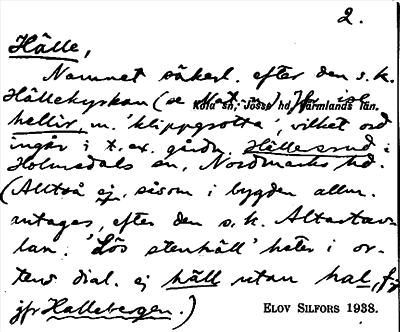 2.
Hälle,
Namnet säkerl. efter den s.k.
Hällekyrkan (se Mat. ) Jfr isl.
Köla sn, Jösse hd, Värmlands län.
hellir, m. 'klippgrotta', vilket ord
ingår i t.ex. gårdn. Hellesrud i
Holmedals sn, Nordmarks hd.
(Alltså ej, såsom i bygden allm.
antages, efter den s.k. Altartav-
lan. 'Lös stenhäll' heter i or-
tens dial. ej häll utan hal, f.,
jfr Hallebergen.)
ELOV SILFORS 1938.